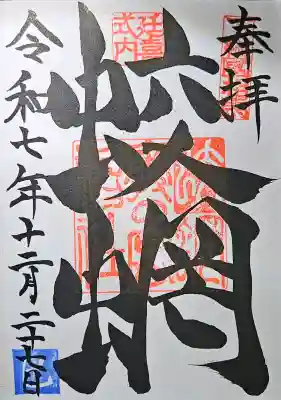 奉拝
延喜
式内
蛟蝄
令和七年十二月二十七日